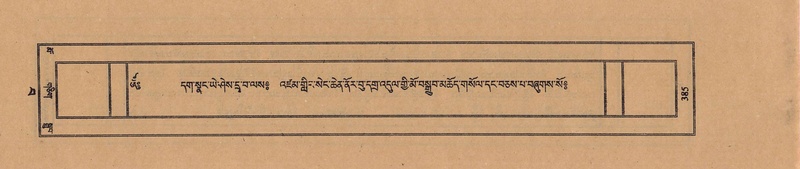 ༄༅། དག་སྣང་ཡེ་ཤེས་དྲྭ་བ་ལས༔ འཛམ་གླིང་སེང་ཆེན་ནོར་བུ་དགྲ་འདུལ་གྱི་མོ་བསྒྲུབ་མཆོད་གསོལ་དང་བཅས་པ་བཞུགས་སོ༔
385